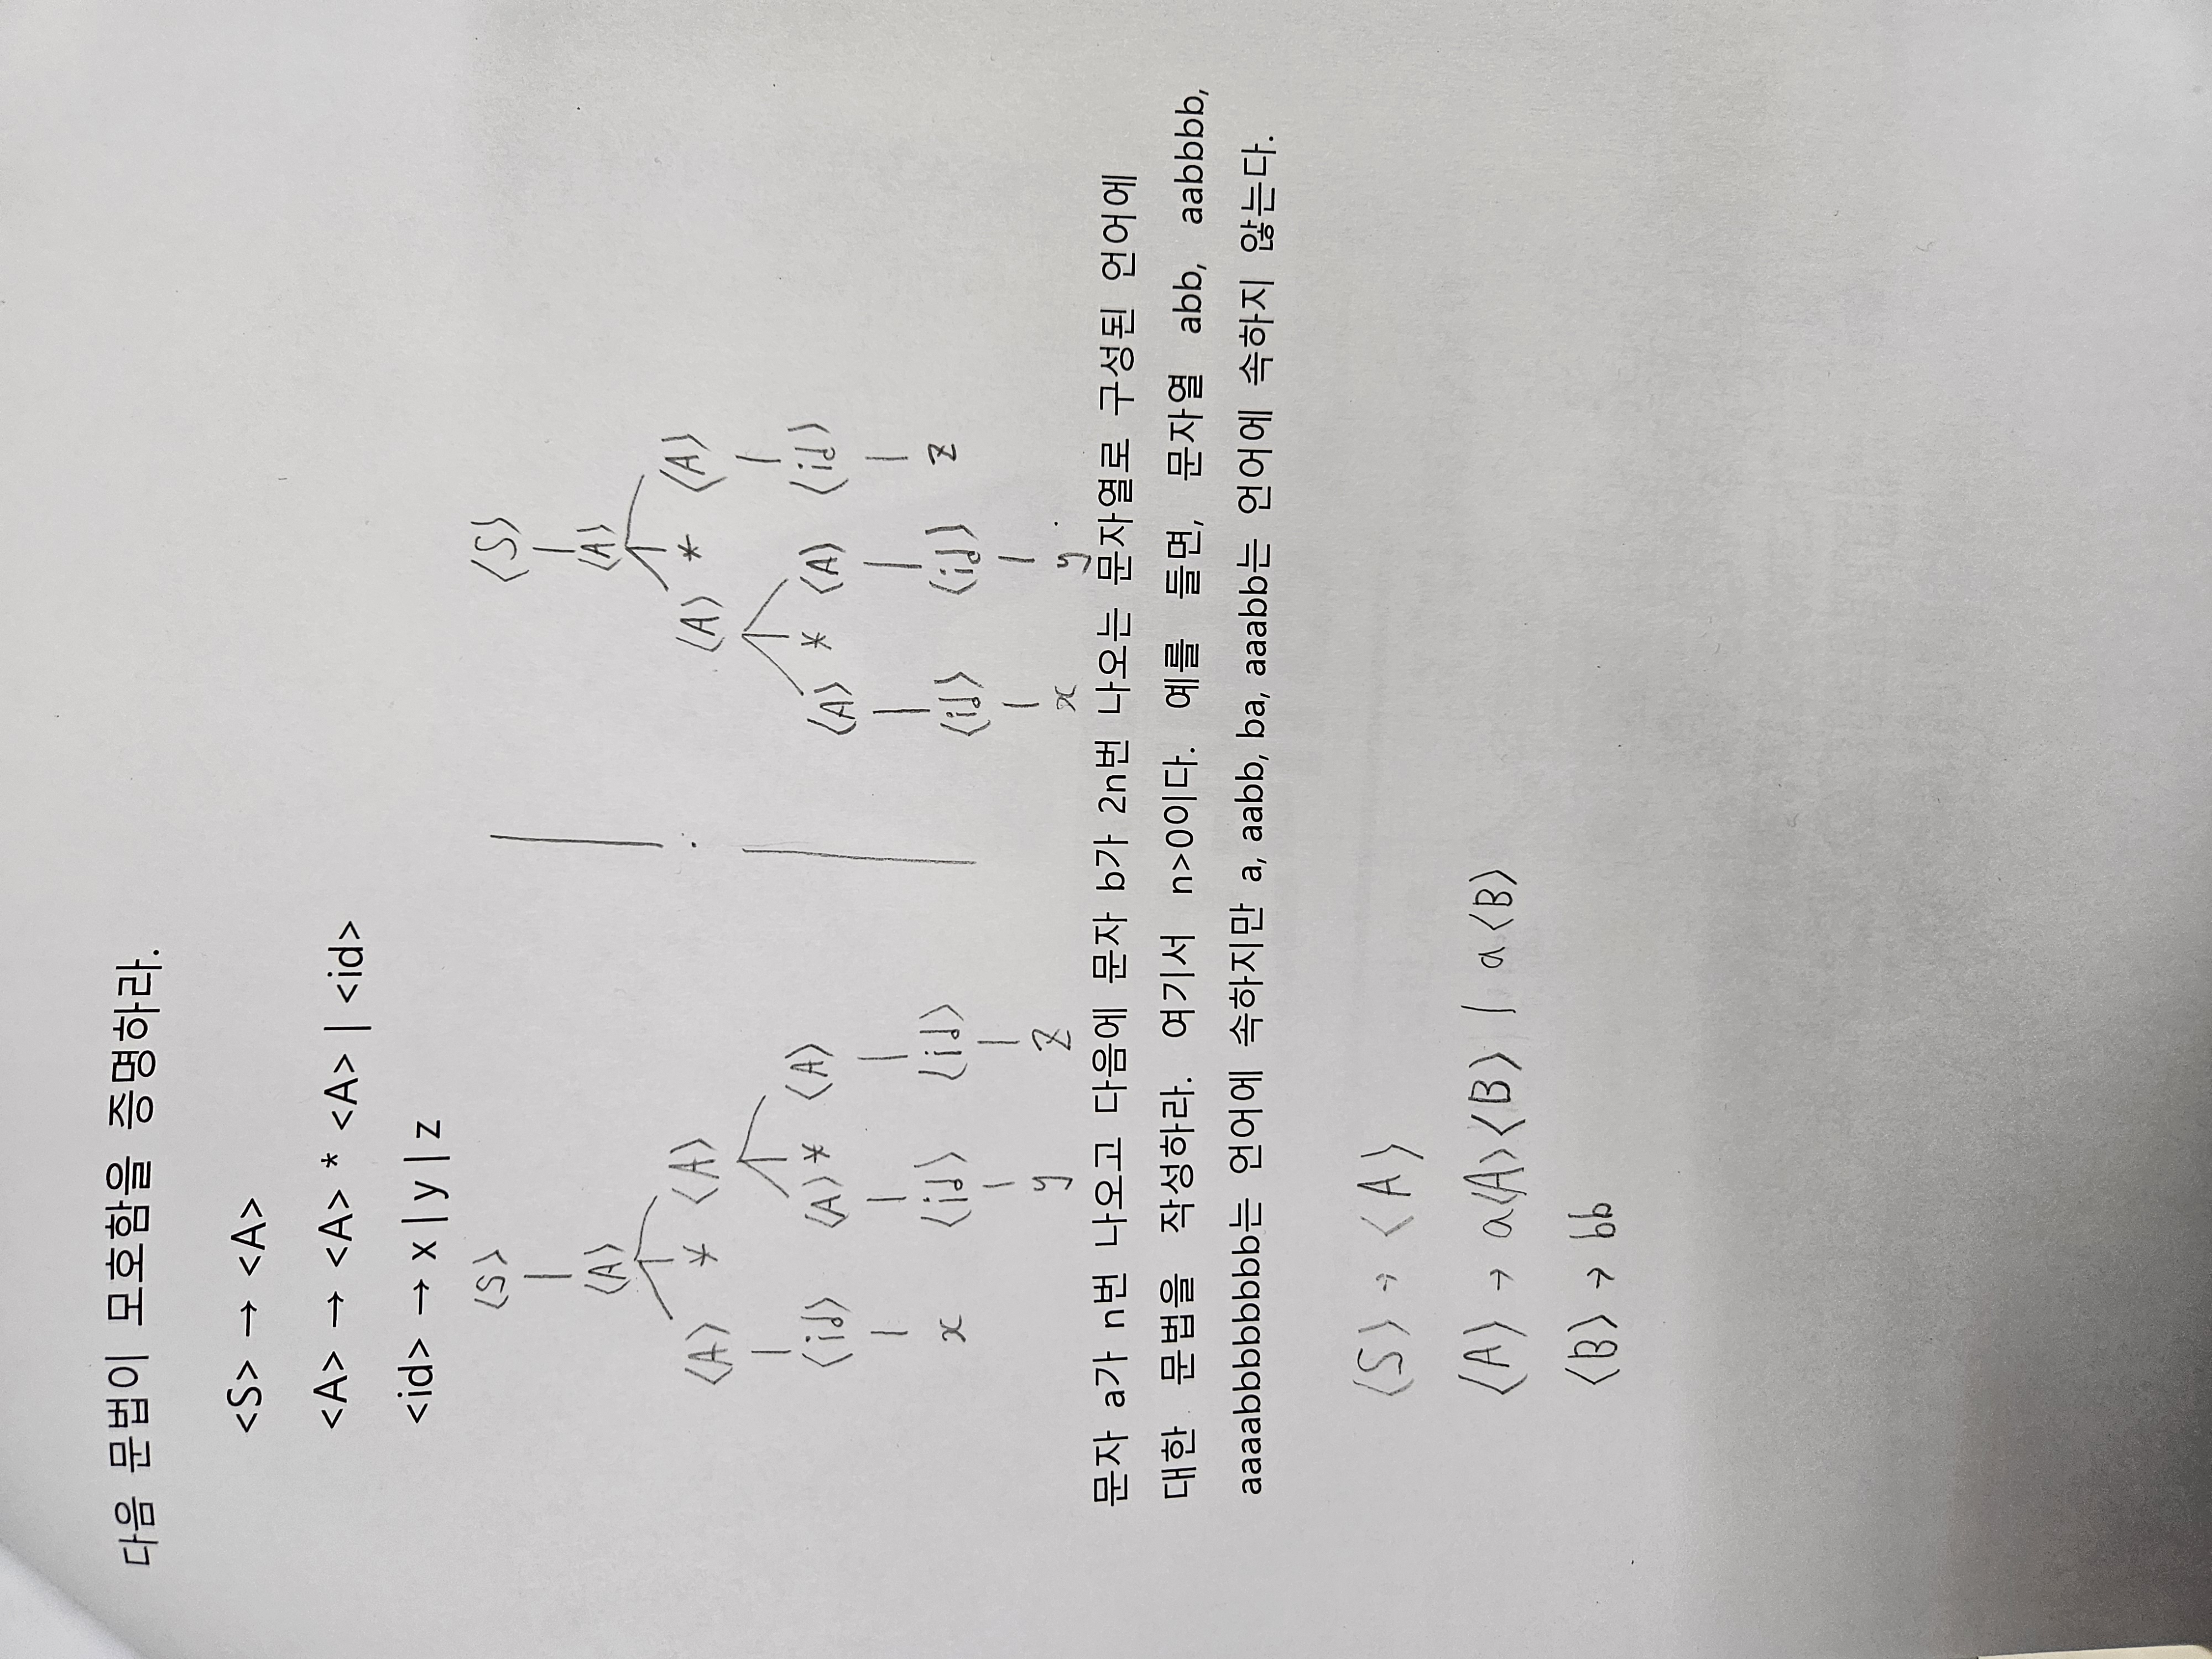 다음 문법이 모호함을 증명하라.
<S> → <A>
<A> → <A> * <A> | <id>
<id> → x | y | z
⟨S⟩ ⟨S⟩
⟨A⟩ ⟨A⟩
⟨A⟩ * ⟨A⟩ ⟨A⟩ * ⟨A⟩
⟨id⟩ ⟨A⟩ * ⟨A⟩ ⟨A⟩ * ⟨A⟩ ⟨id⟩
x ⟨id⟩ ⟨id⟩ ⟨id⟩ ⟨id⟩ z
y z x y
문자 a가 n번 나오고 다음에 문자 b가 2n번 나오는 문자열로 구성된 언어에
대한 문법을 작성하라. 여기서 n>0이다. 예를 들면, 문자열 abb, aabbbb,
aaaabbbbbbbb는 언어에 속하지만 a, aabb, ba, aaabb는 언어에 속하지 않는다.
⟨S⟩ → ⟨A⟩
⟨A⟩ → a⟨A⟩⟨B⟩ | a⟨B⟩
⟨B⟩ → bb